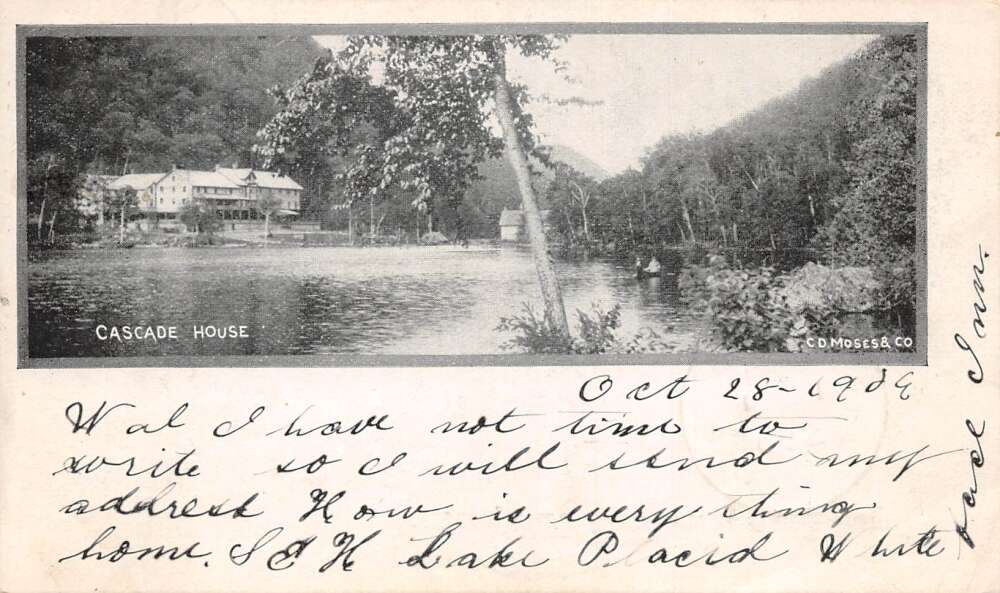 CASCADE HOUSE
C.D. MOSES & CO
Oct 28-1909
Wal I have not time to
write so I will send my
address How is every thing
home. S E H Lake Placid White
face Inn.